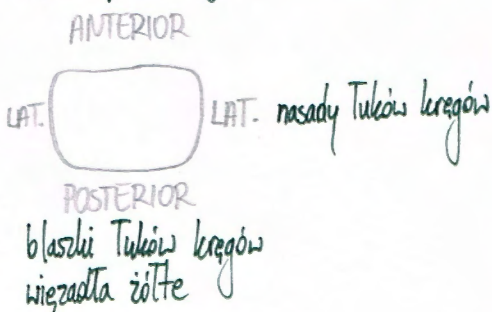 ANTERIOR
LAT. LAT. nasady łuków kręgów
POSTERIOR
blaszki łuków kręgów
więzadła żółte